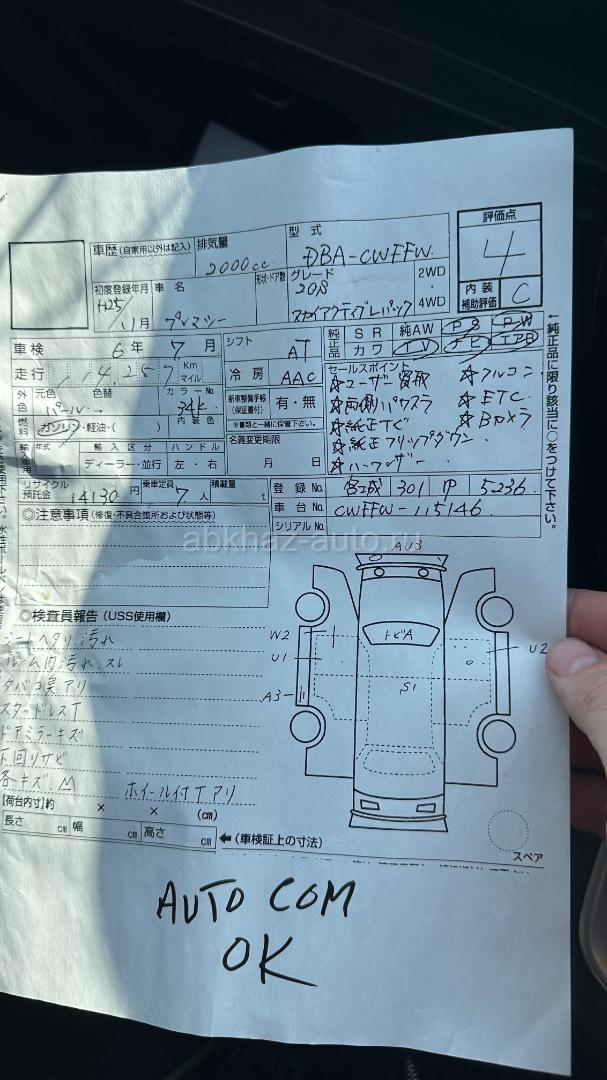 評価点
4
内装
補助評価
C
車歴 (自家用以外は記入)
排気量
2000cc
型式
DBA-CWEFW
初度登録年月
H25/11月
車名
プレマシー
形状・ドア数
グレード
20S
スカイアクティブLパック
2WD
・
4WD
車検
6年 7月
シフト
AT
純正品
SR
純AW
PS
PW
カワ
TV
ナビ
エアB
←純正品に限り該当に○をつけて下さい。
走行
114,257
Km
マイル
冷房
AAC
セールスポイント
☆ユーザー買取
☆フルコン
☆両側パワスラ
☆ETC
☆純正ナビ
☆Bカメラ
☆純正フリップダウン
☆ハーフレザー
外色
元色
パール
色替
→
カラーNo.
34K
内装色
新車整備手帳
(保証書付)
有・無
※書類と一緒に保管して下さい。
燃料
ガソリン・軽油・( )
名義変更期限
月 日
輸入区分
ハンドル
ディーラー・並行
左・右
リサイクル
預託金
14130円
乗車定員
7人
積載量
t
登録No.
宮城 301 5236
車台No.
CWEFW-115146
シリアルNo.
◎注意事項 (修復・不具合箇所および状態等)
abkhaz-auto.ru
◎検査員報告 (USS使用欄)
シートヘタリ、汚れ
ルーム内汚れ、スレ
タバコ臭アリ
スタッドレスT
ドアミラーキズ
下回りサビ
各キズ
ホイール付Tアリ
AU3
W2
U1
A3
トビA
S1
U2
【荷台内寸】約 × × (cm)
長さ cm 幅 cm 高さ cm ←(車検証上の寸法)
スペア
AUTO COM
OK